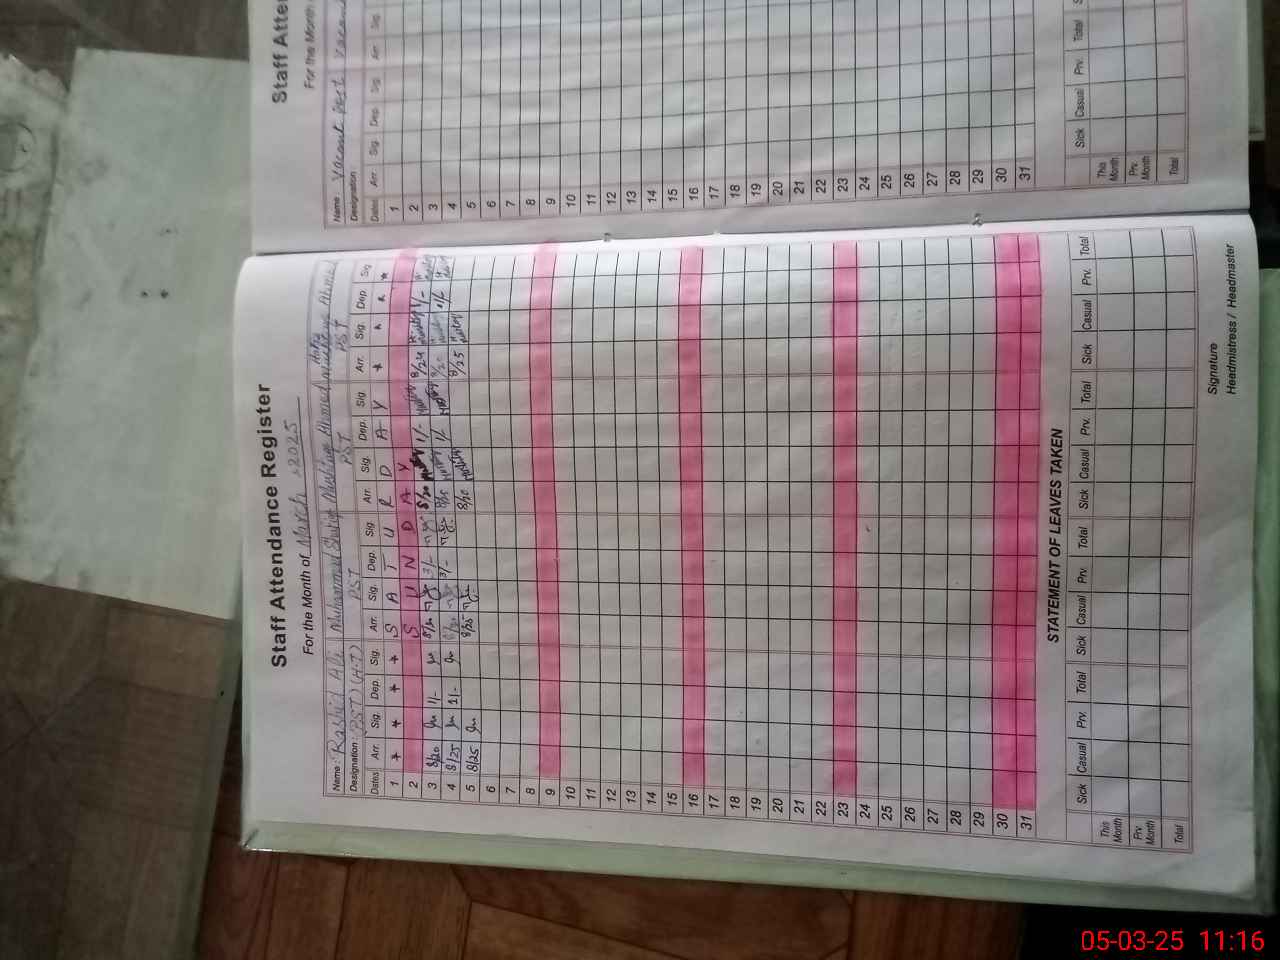 Staff Attendance Register
For the Month of March 2025
Name: Rashid Ali Muhammad Shafique Mushtaque Ahmed Mushtaque Ahmed
Designation: PST (H.T) PST PST PST
Dates Arr. Sig. Dep. Sig. Arr. Sig. Dep. Sig. Arr. Sig. Dep. Sig. Arr. Sig. Dep Sig
1 * * * * S A T U R D A Y * * * *
2 S U N D A Y
3 8/20 1/- 8/20 3/- 8/20 1/- 8/20 1/-
4 8/25 1/- 8/20 3/- 1/-
5 8/25 8/25 8/20 8/25
6
7
8
9
10
11
12
13
14
15
16
17
18
19
20
21
22
23
24
25
26
27
28
29
30
31
STATEMENT OF LEAVES TAKEN
Sick Casual Prv. Total Sick Casual Prv. Total Sick Casual Prv. Total Sick Casual Prv. Total
This Month
Prv. Month
Total
Signature
Headmistress / Headmaster
Staff Atten
For the Month
Name Vacant Post Vacant
Designation
Dates Arr. Sig. Dep. Sig. Arr. Sig.
1
2
3
4
5
6
7
8
9
10
11
12
13
14
15
16
17
18
19
20
21
22
23
24
25
26
27
28
29
30
31
Sick Casual Prv. Total S
This Month
Prv. Month
Total
05-03-25 11:16